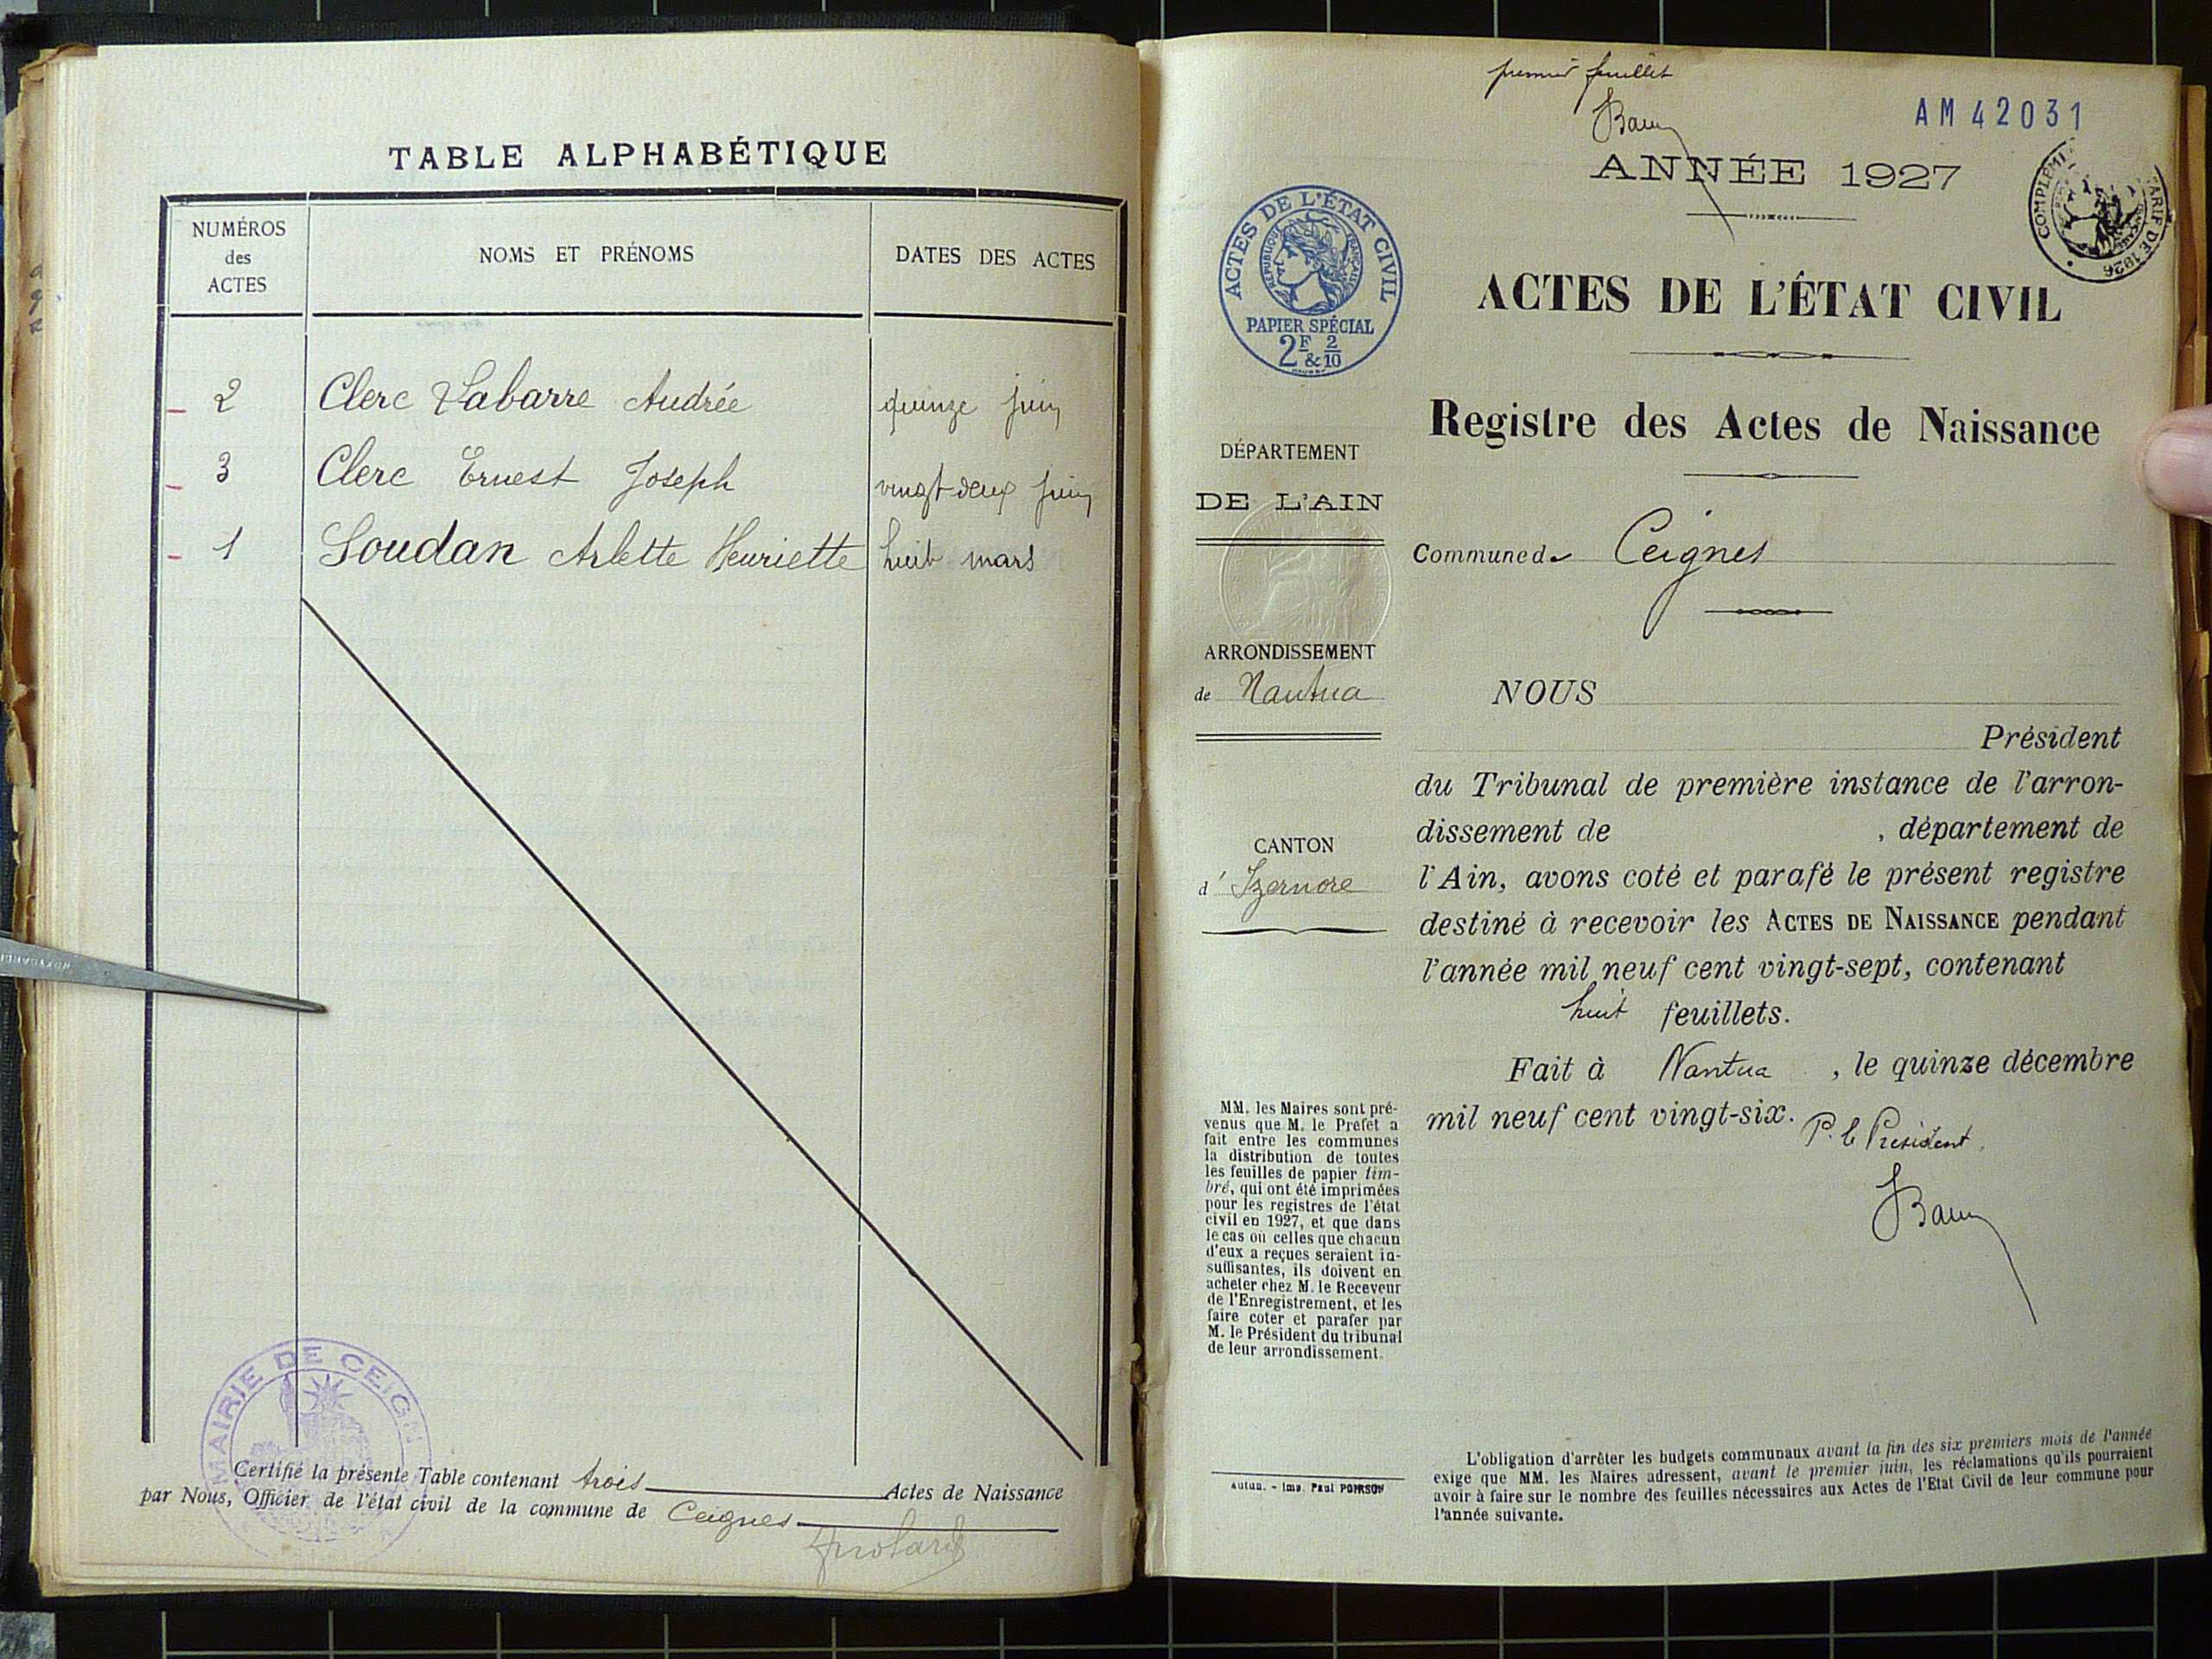 TABLE ALPHABÉTIQUE
NUMÉROS
des
ACTES
NOMS ET PRÉNOMS
DATES DES ACTES
2 Clerc Labarre Andrée quinze juin
3 Clerc Ernest Joseph vingt-deux juin
1 Soudan Arlette Henriette huit mars
MAIRIE DE CEIGN
Certifié la présente Table contenant trois Actes de Naissance
par Nous, Officier de l'état civil de la commune de Ceignes
premier feuillet
AM 42031
ANNÉE 1927
ACTES DE L'ÉTAT CIVIL
RÉPUBLIQUE FRANÇAISE
PAPIER SPÉCIAL
2F & 2/10
COMPLÉM
TARIF DE 1926
ACTES DE L'ÉTAT CIVIL
Registre des Actes de Naissance
DÉPARTEMENT
DE L'AIN
Commune de Ceignes
ARRONDISSEMENT
de Nantua
CANTON
d' Izernore
NOUS
Président
du Tribunal de première instance de l'arron-
dissement de , département de
l'Ain, avons coté et parafé le présent registre
destiné à recevoir les ACTES DE NAISSANCE pendant
l'année mil neuf cent vingt-sept, contenant
huit feuillets.
Fait à Nantua , le quinze décembre
mil neuf cent vingt-six.
P. le Président
MM. les Maires sont pré-
venus que M. le Préfet a
fait entre les communes
la distribution de toutes
les feuilles de papier tim-
bré, qui ont été imprimées
pour les registres de l'état
civil en 1927, et que dans
le cas où celles que chacun
d'eux a reçues seraient in-
suffisantes, ils doivent en
acheter chez M. le Receveur
de l'Enregistrement, et les
faire coter et parafer par
M. le Président du tribunal
de leur arrondissement.
Autun. - Imp. Paul POIRSON
L'obligation d'arrêter les budgets communaux avant la fin des six premiers mois de l'année
exige que MM. les Maires adressent, avant le premier juin, les réclamations qu'ils pourraient
avoir à faire sur le nombre des feuilles nécessaires aux Actes de l'Etat Civil de leur commune pour
l'année suivante.